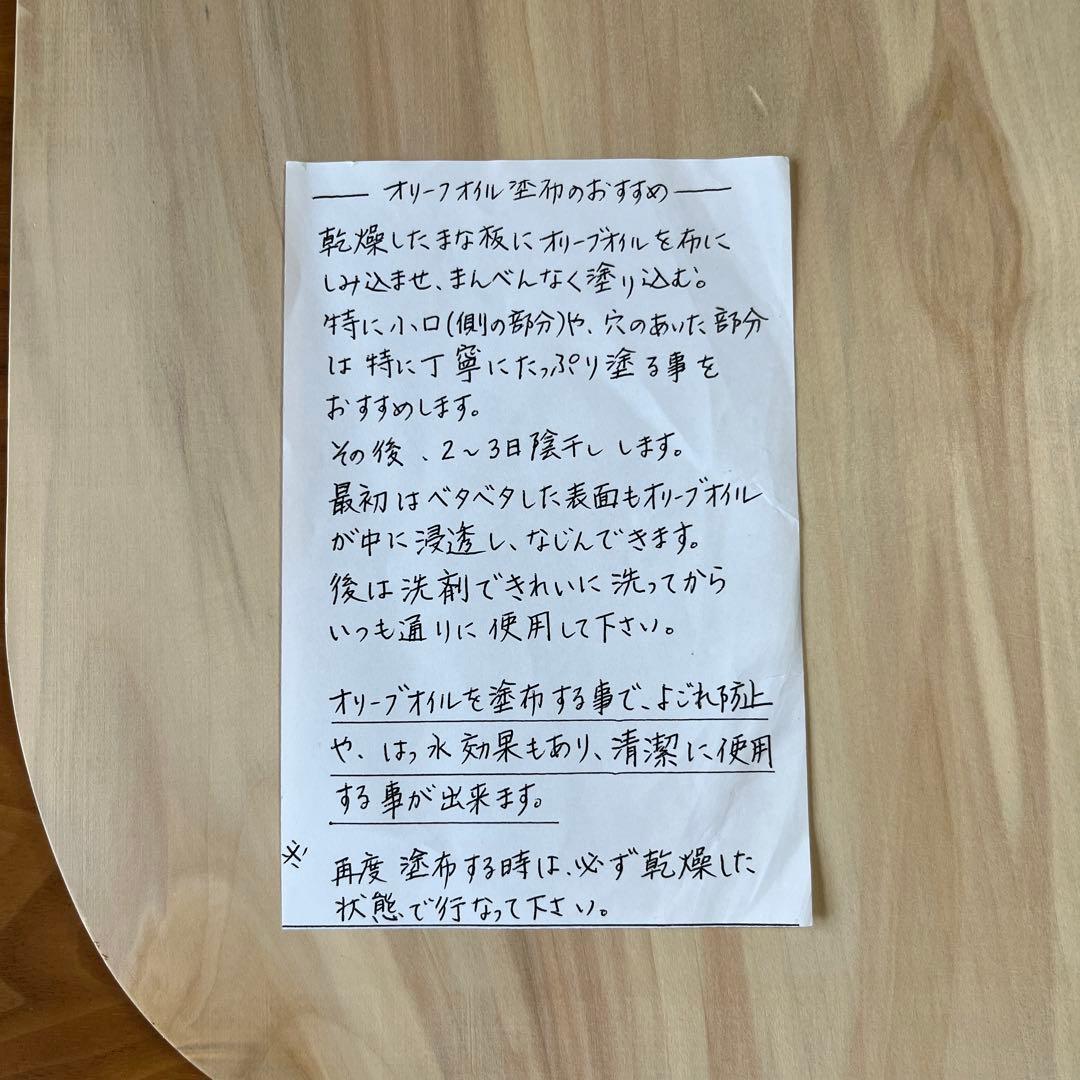 オリーブオイル塗布のおすすめ
乾燥したまな板にオリーブオイルを布に
しみ込ませ、まんべんなく塗り込む。
特に小口(側の部分)や、穴のあいた部分
は特に丁寧にたっぷり塗る事を
おすすめします。
その後、2～3日陰干しします。
最初はベタベタした表面もオリーブオイル
が中に浸透し、なじんできます。
後は洗剤できれいに洗ってから
いつも通りに使用して下さい。
オリーブオイルを塗布する事で、よごれ防止
や、はっ水効果もあり、清潔に使用
する事が出来ます。
※ 再度塗布する時は、必ず乾燥した
状態で行なって下さい。